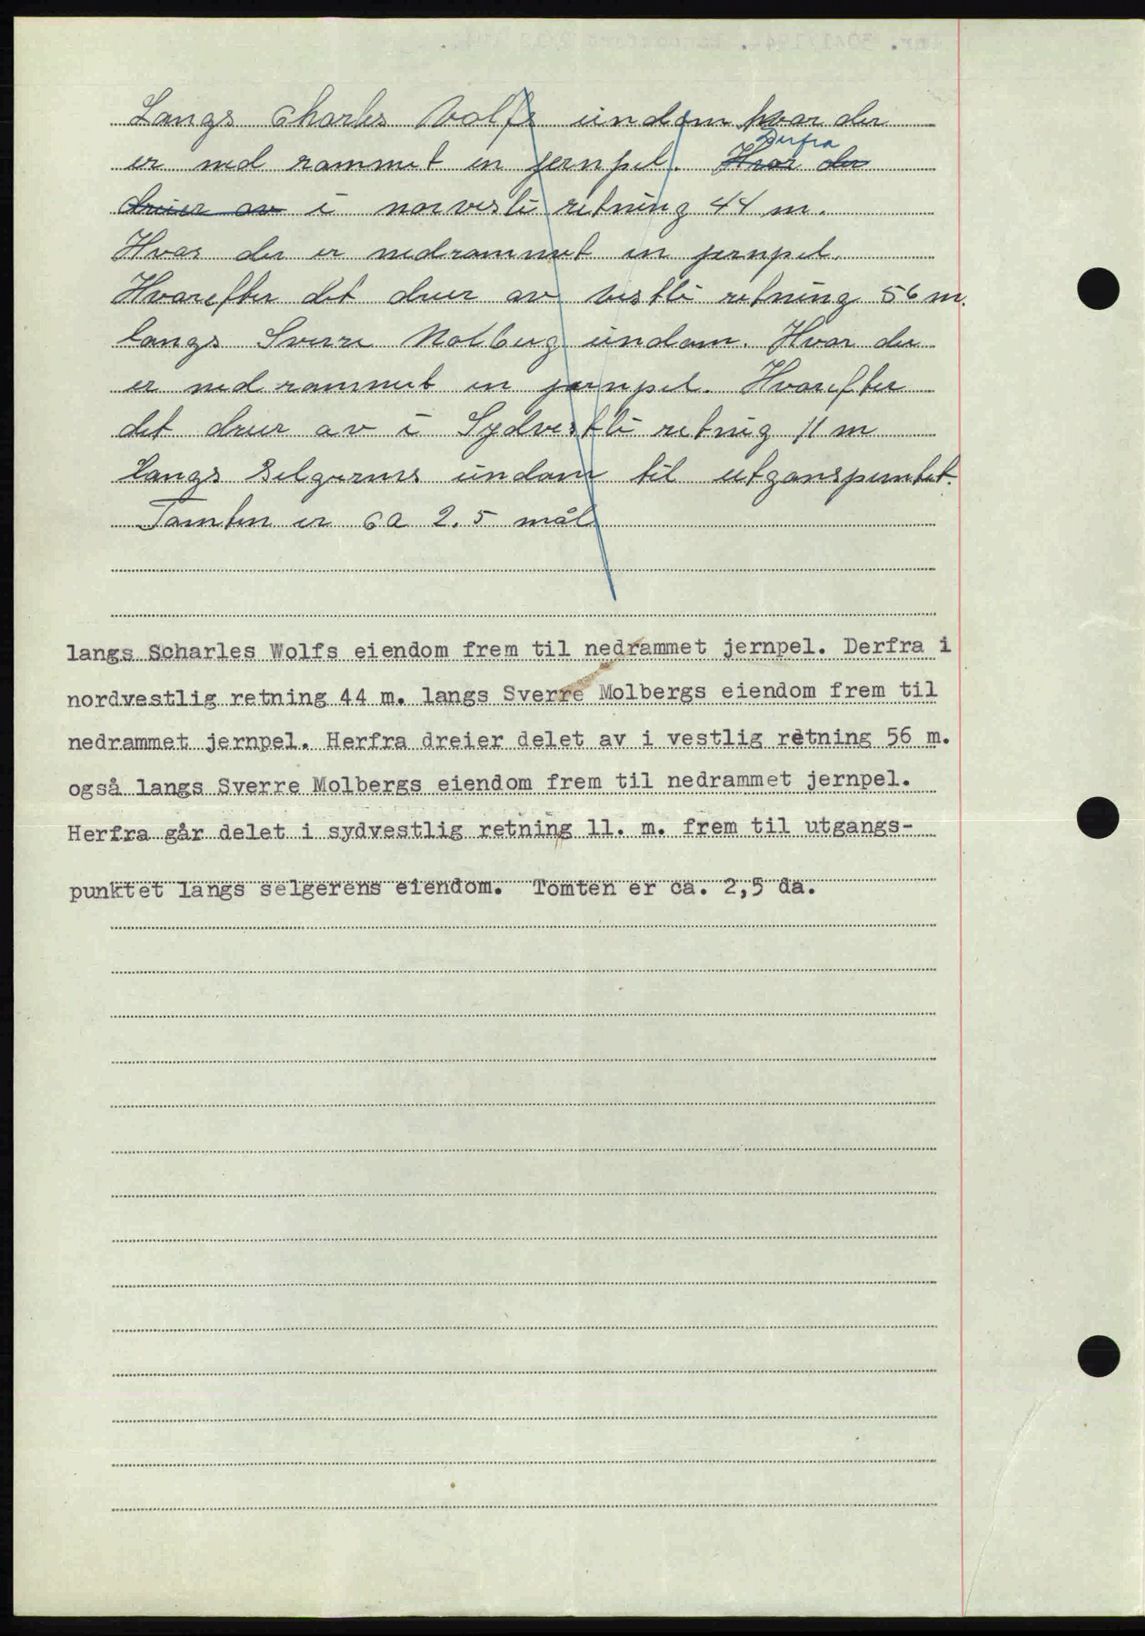 Langs Charles Volfs eindom hvor der
er ned rammet en jernpel. Derfra Hvor der
dreier av i norvestli retning 44 m.
Hvor der er nedrammet en jernpel.
Hvorefter det drier av vestli retning 56 m.
langs Sverre Molberg eindom. Hvor der
er ned rammet en jernpel. Hvorefter
det drier av i Sydvestli retnig 11 m
langs Selgerens eindom til utganspuntet.
Tomten er ca 2.5 mål
langs Scharles Wolfs eiendom frem til nedrammet jernpel. Derfra i
nordvestlig retning 44 m. langs Sverre Molbergs eiendom frem til
nedrammet jernpel. Herfra dreier delet av i vestlig retning 56 m.
også langs Sverre Molbergs eiendom frem til nedrammet jernpel.
Herfra går delet i sydvestlig retning 11. m. frem til utgangs-
punktet langs selgerens eiendom. Tomten er ca. 2,5 da.